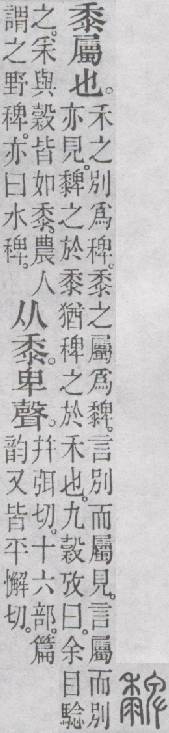 䵗
黍屬也。禾之別爲稗。黍之屬爲䵗。言別而屬見。言屬而別
亦見。䵗之於黍猶稗之於禾也。九穀攷曰。余目騐
之。采與穀皆如黍。農人
謂之野稗。亦曰水稗。
从黍。卑聲。幷弭切。十六部。篇
韵又皆平懈切。